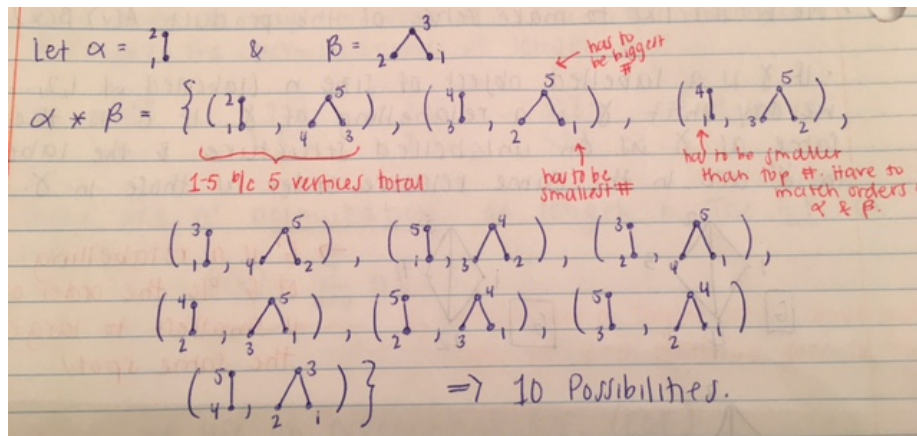 Let α = 2 1 & β = 3 2 1
has to be biggest #
α * β = { ( 2 1 , 5 4 3 ) , ( 4 3 , 5 2 1 ) , ( 4 1 , 5 3 2 ) ,
1-5 b/c 5 vertices total
has to be smallest #
has to be smaller than top #. Have to match orders α & β.
( 3 1 , 5 4 2 ) , ( 5 1 , 4 3 2 ) , ( 3 2 , 5 4 1 ) ,
( 4 2 , 5 3 1 ) , ( 5 2 , 4 3 1 ) , ( 5 3 , 4 2 1 )
( 5 4 , 3 2 1 ) } => 10 Possibilities.